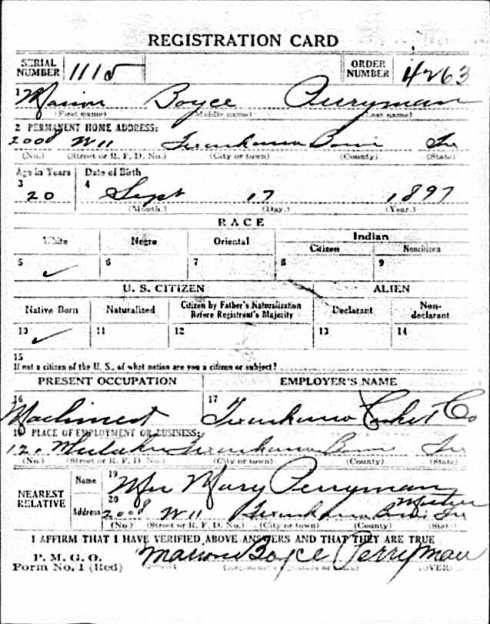 REGISTRATION CARD
SERIAL NUMBER 1115 ORDER NUMBER 4263
1 Marion Boyce Perryman
(First name) (Middle name) (Last name)
2 PERMANENT HOME ADDRESS:
2008 W 11 Texarkana Bowie Tex
(No.) (Street or R. F. D. No.) (City or town) (County) (State)
Age in Years Date of Birth
3 20 4 Sept 17 1897
(Month.) (Day.) (Year.)
RACE
White Negro Oriental Indian
Citizen Noncitizen
5 ✓ 6 7 8 9
U. S. CITIZEN ALIEN
Native Born Naturalized Citizen by Father's Naturalization Before Registrant's Majority Declarant Non-declarant
10 ✓ 11 12 13 14
15
If not a citizen of the U. S., of what nation are you a citizen or subject?
PRESENT OCCUPATION EMPLOYER'S NAME
16 Machinest 17 Texarkana Casket Co
18 PLACE OF EMPLOYMENT OR BUSINESS:
Texarkana Bowie Tex
(No.) (Street or R. F. D. No.) (City or town) (County) (State)
NEAREST RELATIVE Name 19 Mrs Mary Perryman
Address 20 2008 W 11 Texarkana Bowie Tex
(No.) (Street or R. F. D. No.) (City or town) (County) (State)
I AFFIRM THAT I HAVE VERIFIED ABOVE ANSWERS AND THAT THEY ARE TRUE
P. M. G. O.
Form No. 1 (Red) Marion Boyce Perryman
(OVER)